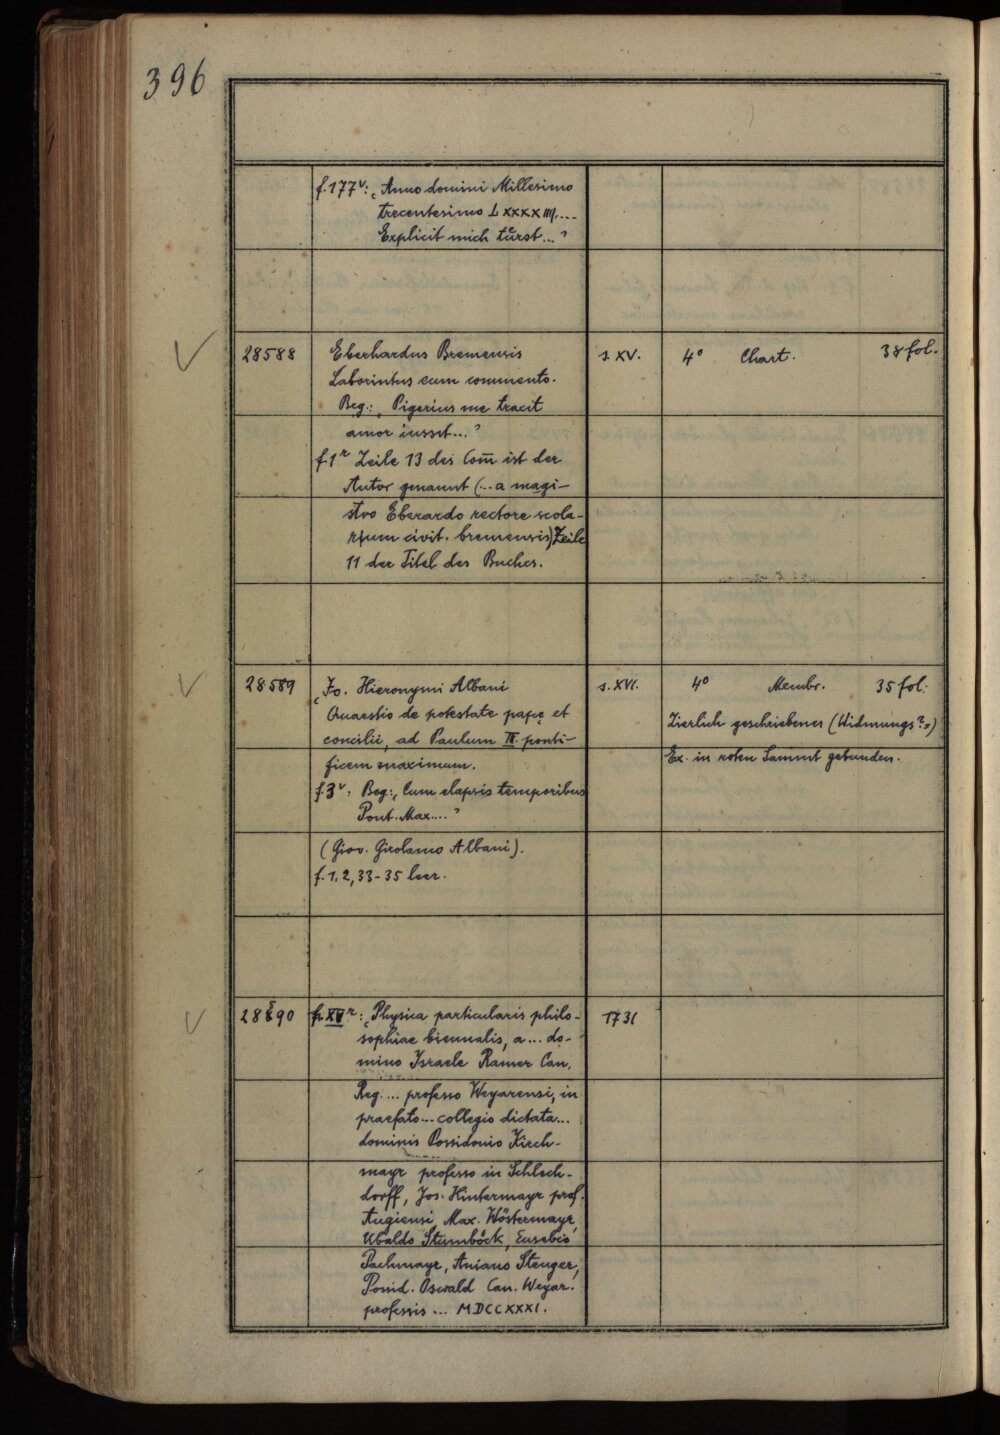 396
f. 177v: „Anno domini Millesimo
trecentesimo LXXXXIIII....
Explicit mich túrst..."
28588 Eberhardus Bremensis s. XV. 4° Chart. 38 fol.
Laborintus cum commento.
Beg.: „Pigerius me traxit
amor iusset..."
f. 1r Zeile 13 des Com̄ ist der
Autor genannt (...a magi-
stro Eberardo rectore scola-
rium civit. bremensis) Zeile
11 der Titel des Buches.
28589 „Jo. Hieronymi Albani s. XVI. 4° Membr. 35 fol.
Quaestio de potestate papę et Zierlich geschriebenes (Widmungs?-)
concilii, ad Paulum III. ponti- Ex. in roten Sammt gebunden.
ficem maximum.
f. 3v: Beg.: „Cum elapsis temporibus
Pont. Max...."
(Giov. Girolamo Albani).
f. 1, 2, 33-35 leer.
28590 f. XVr: „Physica particularis philo- 1731
sophiae biennalis, a... do-
mino Israele Ramer Can.
Reg.... professo Weyarensi, in
praefato... collegio dictata...
dominis Possidonio Kirch-
mayr professo in Schlech-
dorff, Jos. Hintermayr prof.
Augiensi, Max. Wöstermayr,
Ubaldo Stumböck, Eusebio
Pachmayr, Aniano Stenger,
Possid. Oswald Can. Weyar.
professis... MDCCXXXI.